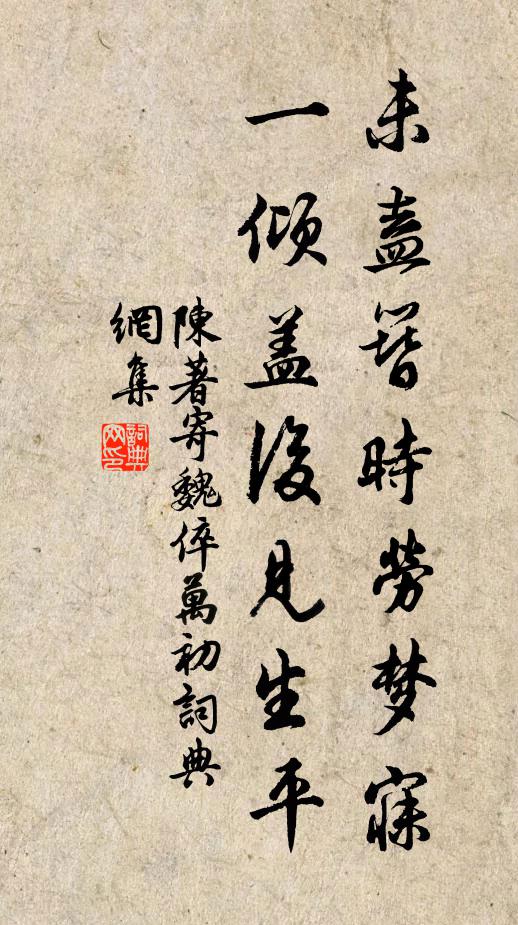 未盍簪時勞梦寐
一傾盖後見生平
陳著寄魏倅萬初詞典
網集
詞典网印